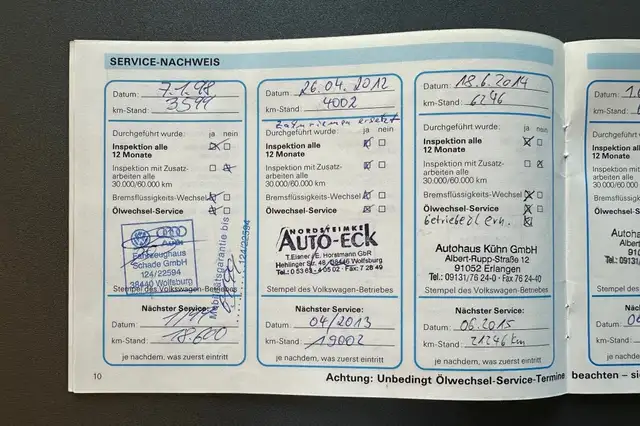 SERVICE-NACHWEIS
Datum: 7.1.98
km-Stand: 3599
Durchgeführt wurde: ja nein
Inspektion alle
12 Monate
Inspektion mit Zusatz-
arbeiten alle
30.000/60.000 km
Bremsflüssigkeits-Wechsel
Ölwechsel-Service
Audi
Fahrzeughaus
Schade GmbH
124/22594
38440 Wolfsburg
Mobilitätsgarantie bis
124/22594
Stempel des Volkswagen-Betriebes
Nächster Service:
Datum:
km-Stand: 18.600
je nachdem, was zuerst eintritt
10
Datum: 26.04.2012
km-Stand: 4002
Zahnriemen ersetzt
Durchgeführt wurde: ja nein
Inspektion alle
12 Monate
Inspektion mit Zusatz-
arbeiten alle
30.000/60.000 km
Bremsflüssigkeits-Wechsel
Ölwechsel-Service
NORDSTEIMKE
AUTO-ECK
T.Eisner / E. Horstmann GbR
Hehlinger Str. 48, 38446 Wolfsburg
Tel.: 0 53 63 - 4 05 02 · Fax: 7 28 49
Stempel des Volkswagen-Betriebes
Nächster Service:
Datum: 04/2013
km-Stand: 19002
je nachdem, was zuerst eintritt
Datum: 18.6.2014
km-Stand: 6246
Durchgeführt wurde: ja nein
Inspektion alle
12 Monate
Inspektion mit Zusatz-
arbeiten alle
30.000/60.000 km
Bremsflüssigkeits-Wechsel
Ölwechsel-Service
Getriebeöl ern.
Autohaus Kühn GmbH
Albert-Rupp-Straße 12
91052 Erlangen
Tel.: 09131/76 24-0 · Fax 76 24-40
Stempel des Volkswagen-Betriebes
Nächster Service:
Datum: 06.2015
km-Stand: 21246 km
je nachdem, was zuerst eintritt
Achtung: Unbedingt Ölwechsel-Service-Termine beachten – si
Datum:
km-Stand:
Durchgeführt
Inspektion alle
12 Monate
Inspektion
arbeiten alle
30.000/60.
Bremsflüssi
Ölwechsel-
Stempel des
Nächst
Datum:
km-Stand:
je nachde